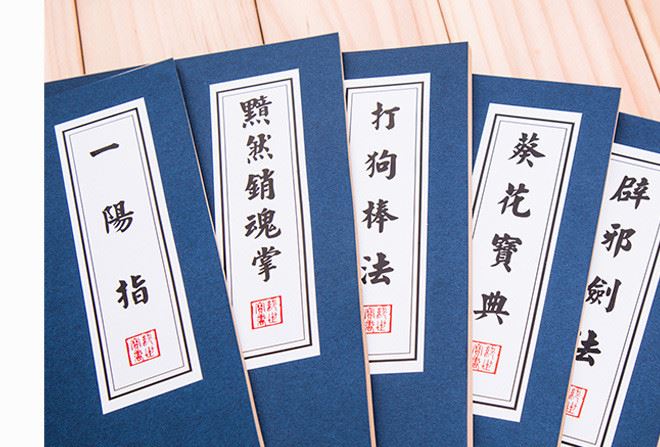 一陽指
黯然銷魂掌
打狗棒法
葵花寶典
辟邪劍法